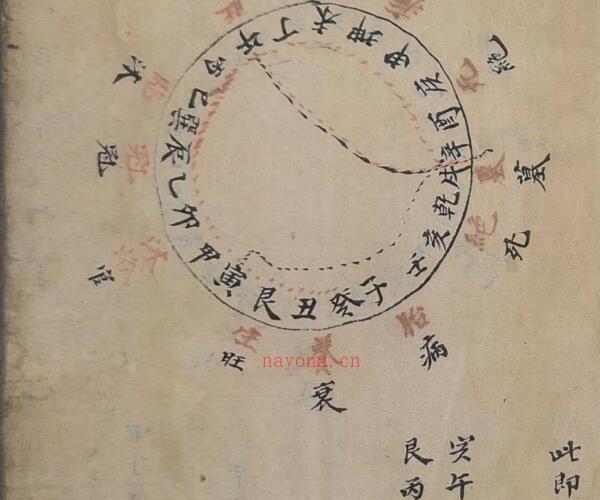 午丁未坤申庚酉辛戌乾亥壬子癸丑艮寅甲卯乙辰巽巳丙
绝
墓
死
病
衰
旺
官
冠
沐
墓
绝
胎
养
沐浴
冠
亥午
艮丙
此即
nayona.cn